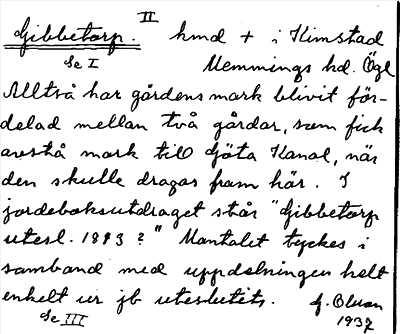 II
Gibbetorp. hmd + i Kimstad
Se I Memmings hd. Ögl
Alltså har gårdens mark blivit för-
delad mellan två gårdar, som fick
avstå mark till Göta Kanal, när
den skulle dragas fram här. I
jordeboksutdraget står "Gibbetorp
utesl. 1893?" Mantalet tyckes i
samband med uppdelningen helt
enkelt ur jb uteslutits. G. Olson
Se III 1937